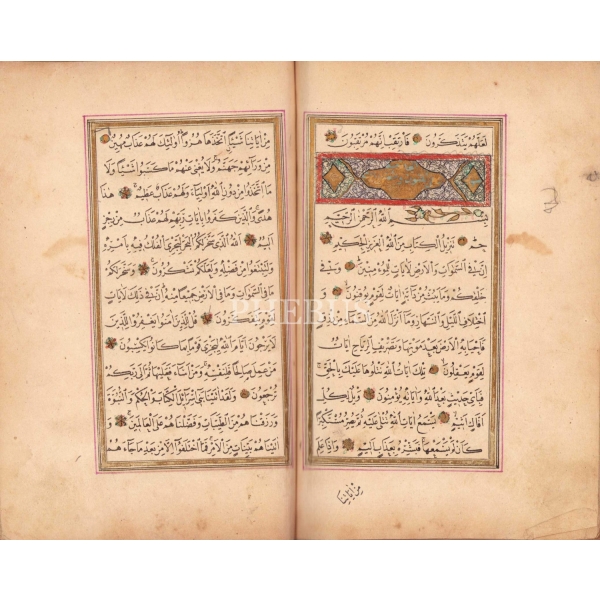 لعلهم يتذكرون فارتقب انهم مرتقبون
بسم الله الرحمن الرحيم
حم تنزيل الكتاب من الله العزيز الحكيم
ان في السموات والارض لايات للمؤمنين وفي
خلقكم وما يبث من دابة ايات لقوم يوقنون و
اختلاف الليل والنهار وما انزل الله من السماء من رزق
فاحيا به الارض بعد موتها وتصريف الرياح ايات
لقوم يعقلون تلك ايات الله نتلوها عليك بالحق
فباي حديث بعد الله واياته يؤمنون ويل لكل
افاك اثيم يسمع ايات الله تتلى عليه ثم يصر مستكبرا
كان لم يسمعها فبشره بعذاب اليم واذا علم
من اياتنا
من اياتنا شيئا اتخذها هزوا اولئك لهم عذاب مهين
من ورائهم جهنم ولا يغني عنهم ما كسبوا شيئا ولا
ما اتخذوا من دون الله اولياء ولهم عذاب عظيم هذا
هدى والذين كفروا بايات ربهم لهم عذاب من رجز
اليم الله الذي سخر لكم البحر لتجري الفلك فيه بامره
ولتبتغوا من فضله ولعلكم تشكرون وسخر لكم
ما في السموات وما في الارض جميعا منه ان في ذلك لايات
لقوم يتفكرون قل للذين امنوا يغفروا للذين
لا يرجون ايام الله ليجزي قوما بما كانوا يكسبون
من عمل صالحا فلنفسه ومن اساء فعليها ثم الى ربكم
ترجعون ولقد اتينا بني اسرائيل الكتاب والحكم والنبوة
ورزقناهم من الطيبات وفضلناهم على العالمين و
اتيناهم بينات من الامر فما اختلفوا الا من بعد ما جاءهم
PHEBUS